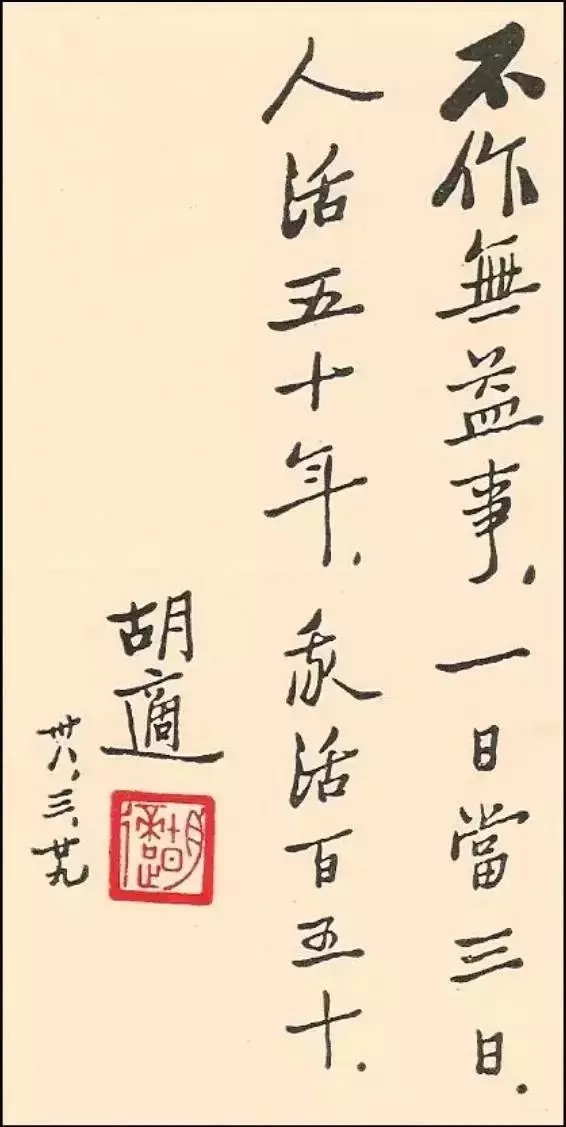 不作無益事，一日當三日．
人活五十年，我活百五十．
胡適
卅八，三，廿九
胡適